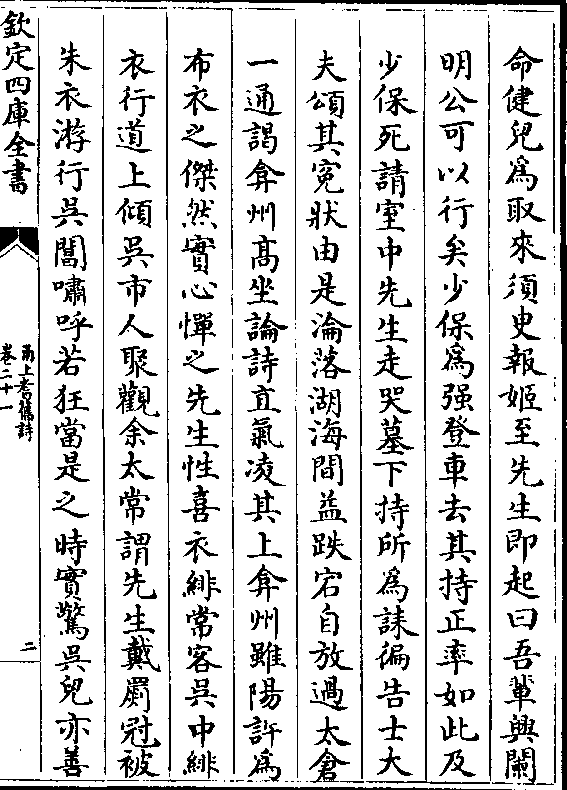 命健兒爲取來須臾報姬至先生即起曰吾輩興闌
明公可以行矣少保爲强登車去其持正率如此及
少保死請室中先生走哭墓下持所爲誄徧告士大
夫頌其寃狀由是淪落湖海間益跌宕自放過太倉
一通謁弇州髙坐論詩直氣凌其上弇州雖陽許爲
布衣之傑然實心憚之先生性喜衣緋常客吳中緋
衣行道上傾吳市人聚觀余太常謂先生戴罽冠被
朱衣游行吳閶嘯呼若狂當是之時實驚吳兒亦善
欽定四庫全書
甬上耆舊詩
卷二十一
二